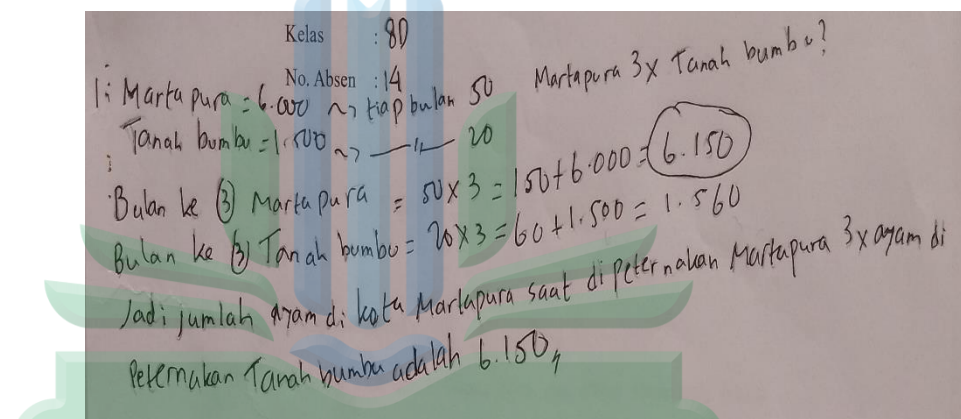 Kelas : 8D
No. Absen : 14
Martapura 3x Tanah bumbu?
1: Martapura = 6.000 ~> tiap bulan 50
Tanah bumbu = 1.500 ~> —"— 20
:
Bulan ke (3) Martapura = 50 x 3 = 150 + 6.000 = 6.150
Bulan ke (3) Tanah bumbu = 20 x 3 = 60 + 1.500 = 1.560
Jadi jumlah ayam di kota Martapura saat di peternakan Martapura 3x ayam di
Peternakan Tanah bumbu adalah 6.150,,